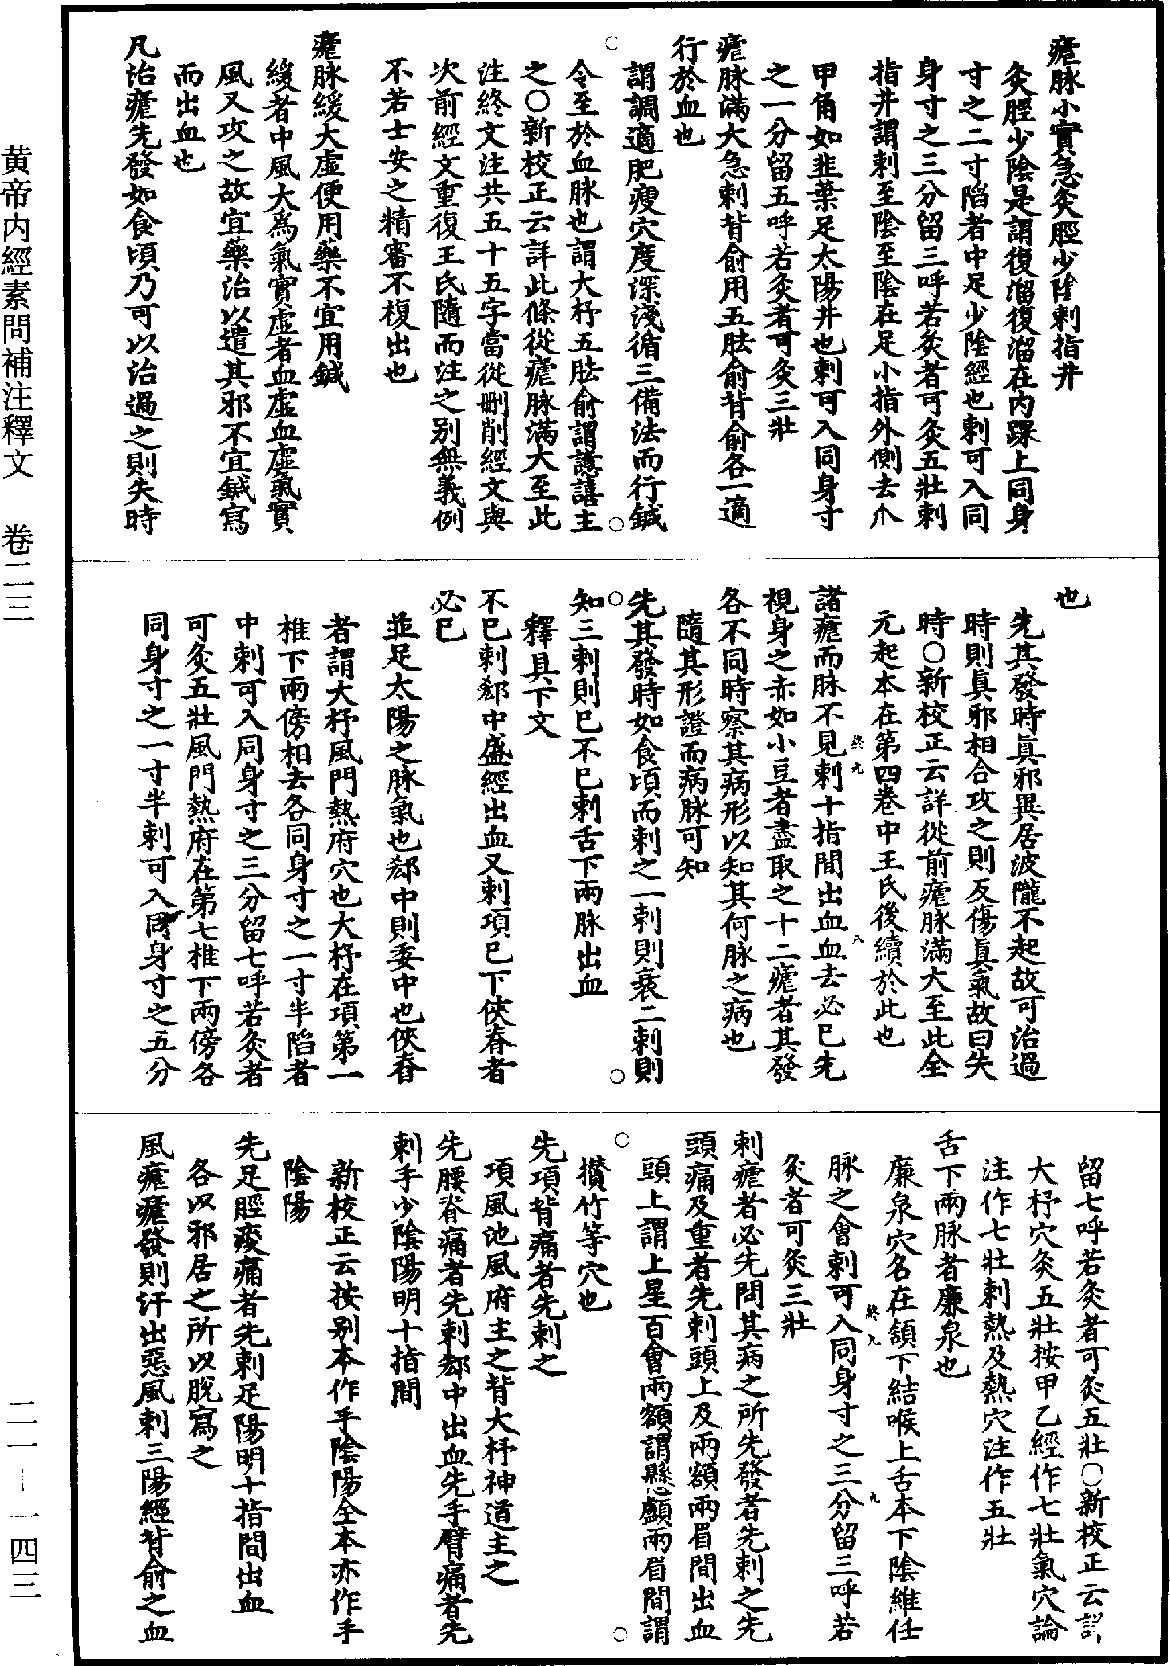 瘧脉小實急灸脛少陰刺指井
灸脛少陰是謂復溜復溜在内踝上同身
寸之二寸陷者中足少陰經也刺可入同
身寸之三分留三呼若灸者可灸五壯刺
指井謂刺至陰至陰在足小指外側去爪
甲角如韭葉足太陽井也刺可入同身寸
之一分留五呼若灸者可灸三壯
瘧脉滿大急刺背俞用五胠俞背俞各一適
行於血也
謂調適肥瘦穴度深淺循三備法而行鍼
令至於血脉也謂大杼五胠俞謂譩譆主
之○新校正云詳此條從瘧脉滿大至此
注終文注共五十五字當從刪削經文與
次前經文重復王氏隨而注之别無義例
不若士安之精審不複出也
瘧脉緩大虛便用藥不宜用鍼
緩者中風大為氣實虛者血虛血虛氣實
風又攻之故宜藥治以遣其邪不宜鍼寫
而出血也
凡治瘧先發如食頃乃可以治過之則失時
也
先其發時真邪異居波隴不起故可治過
時則真邪相合攻之則反傷真氣故曰失
時○新校正云詳從前瘧脉滿大至此全
元起本在第四卷中王氏後續於此也
諸瘧而脉不見刺十指間出血血去必已先
視身之赤如小豆者盡取之十二瘧者其發
各不同時察其病形以知其何脉之病也
隨其形證而病脉可知
先其發時如食頃而刺之一刺則衰二刺則
知三刺則已不已刺舌下兩脉出血
釋具下文
不已刺郄中盛經出血又刺項已下俠脊者
必已
並足太陽之脉氣也郄中則委中也俠脊
者謂大杼風門熱府穴也大杼在項第一
椎下兩傍相去各同身寸之一寸半陷者
中刺可入同身寸之三分留七呼若灸者
可灸五壯風門熱府在第七椎下兩傍各
同身寸之一寸半刺可入同身寸之五分
留七呼若灸者可灸五壯○新校正云詳
大杼穴灸五壯按甲乙經作七壯氣穴論
注作七壯刺熱及熱穴注作五壯
舌下兩脉者廉泉也
廉泉穴名在頷下結喉上舌本下陰維任
脉之會刺可入同身寸之三分留三呼若
灸者可灸三壯
刺瘧者必先問其病之所先發者先刺之先
頭痛及重者先刺頭上及兩額兩眉間出血
頭上謂上星百會兩額謂懸顱兩眉間謂
攅竹等穴也
先項背痛者先刺之
項風池風府主之背大杼神道主之
先腰脊痛者先刺郄中出血先手臂痛者先
刺手少陰陽明十指間
新校正云按别本作手陰陽全本亦作手
陰陽
先足脛痠痛者先刺足陽明十指間出血
各以邪居之所以脫寫之
風瘧瘧發則汗出惡風刺三陽經背俞之血
黄帝内經素問補注釋文 卷二三
二一-一四三